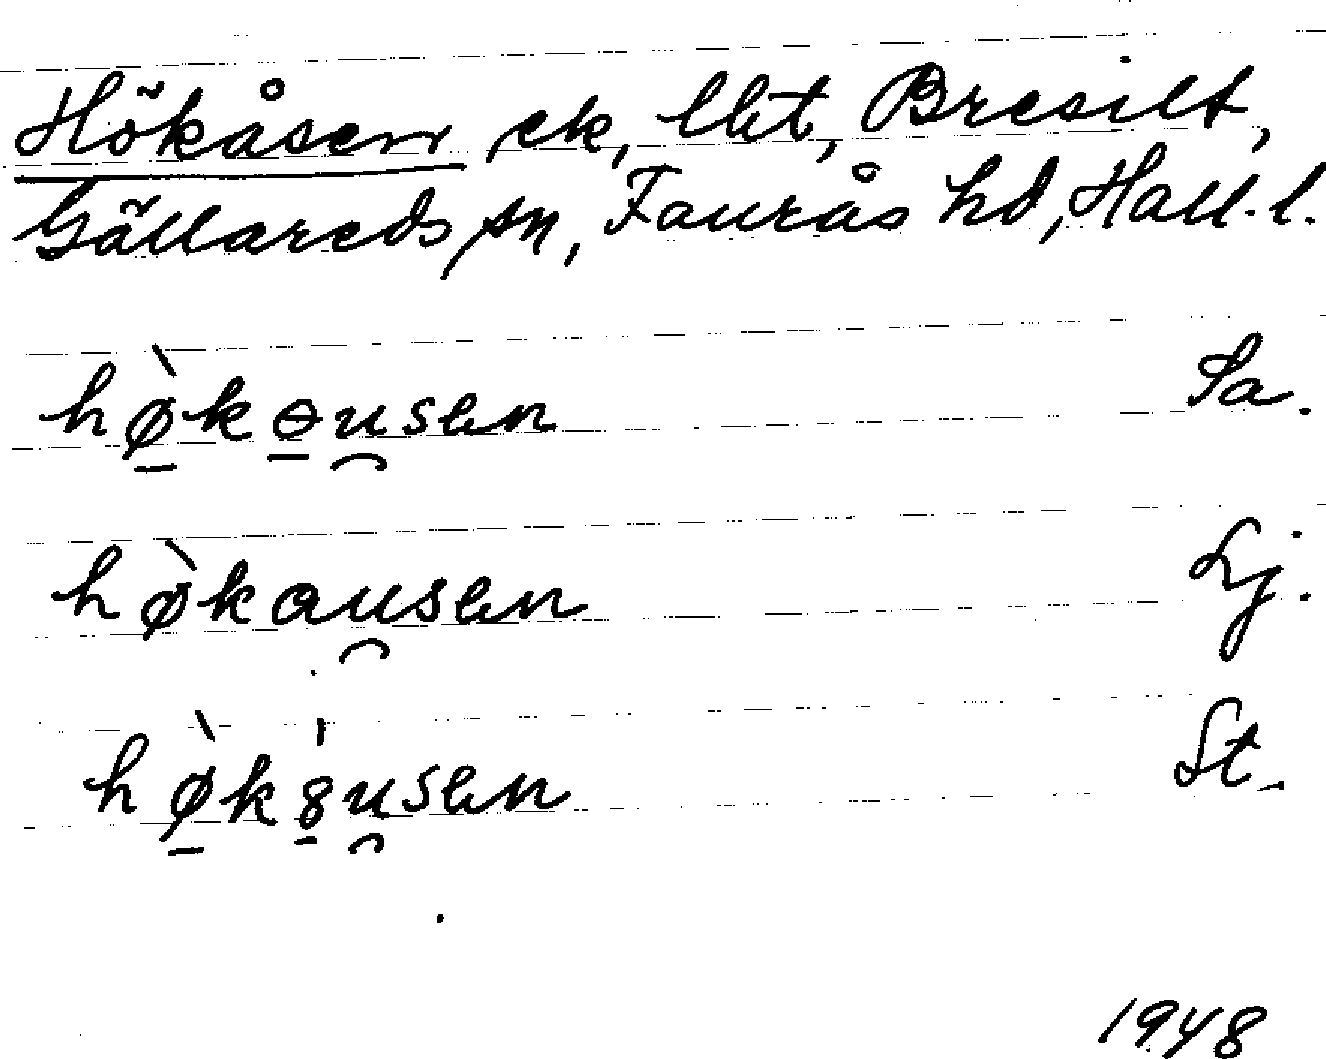 Hökåsen, ek, lht, Bresilt,
Gällareds sn, Faurås hd, Hall. l.
hø̀kɵu̯sen Sa.
hø̀kau̯sen Lj.
hø̀k8u̯sen St.
1948